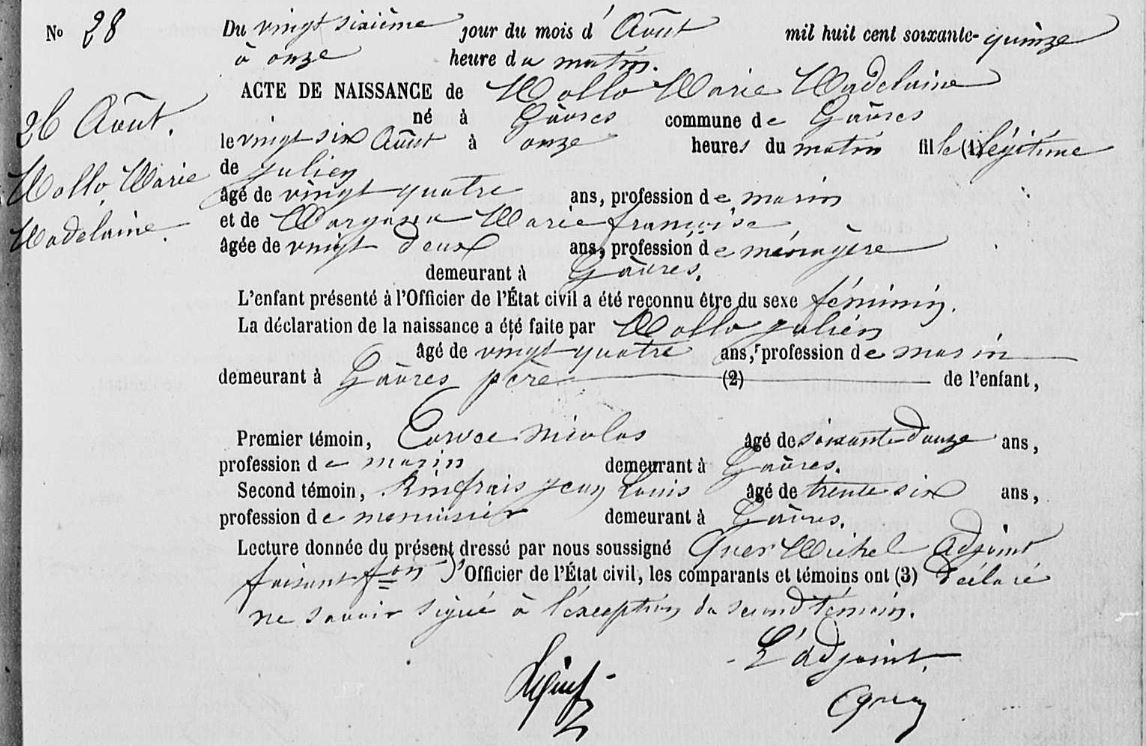 No 28
Du vingt sixième jour du mois d' Août mil huit cent soixante-quinze
à onze heure du matin.
26 Août.
Mollo Marie
Madelaine
ACTE DE NAISSANCE de Mollo Marie Madelaine
né à Gâvres commune de Gâvres
le vingt six Août à onze heures du matin fille (1) légitime
de Julien
âgé de vingt quatre ans, profession de marin
et de Marie françoise,
âgée de vingt deux ans, profession de ménagère
demeurant à Gâvres.
L'enfant présenté à l'Officier de l'État civil a été reconnu être du sexe féminin.
La déclaration de la naissance a été faite par Mollo Julien
âgé de vingt quatre ans, profession de marin
demeurant à Gâvres père (2) de l'enfant,
Premier témoin, Nicolas âgé de soixante douze ans,
profession de marin demeurant à Gâvres.
Second témoin, Jean Louis âgé de trente six ans,
profession de menuisier demeurant à Gâvres.
Lecture donnée du présent dressé par nous soussigné Michel Adjoint
faisant fon l'Officier de l'État civil, les comparants et témoins ont (3) déclaré
ne savoir signé à l'exception du second témoin.
L'adjoint.